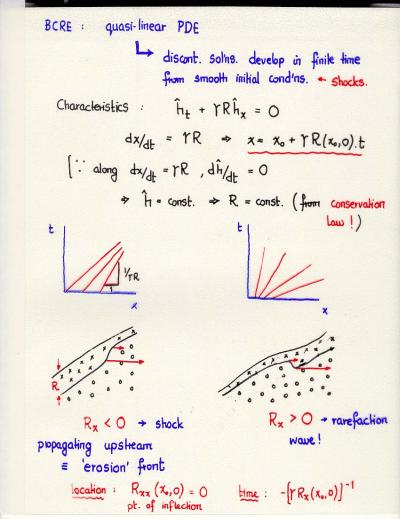 BCRE : quasi-linear PDE
discont. solns. develop in finite time
from smooth initial cond'ns. ← shocks.
Characteristics : ĥt + γRĥx = 0
dx/dt = γR ⇒ x = x₀ + γR(x₀,0).t
[∵ along dx/dt = γR , dĥ/dt = 0
⇒ ĥ = const. ⇒ R = const. (from conservation
law !)
t
1/γR
1
x
t
x
R
Rx < 0 → shock
propagating upstream
≡ 'erosion' front
Rx > 0 → rarefaction
wave!
location : Rxx (x₀,0) = 0
pt. of inflection
time : -[γRx(x₀,0)]⁻¹